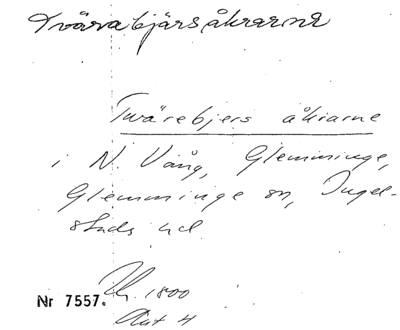 Tvärabjärsåkrarna
Twärebjers åkrarne
i N. Vång, Glemminge,
Glemminge sn, Ingel-
stads hd.
1800
Nr 7557.
Akt 4